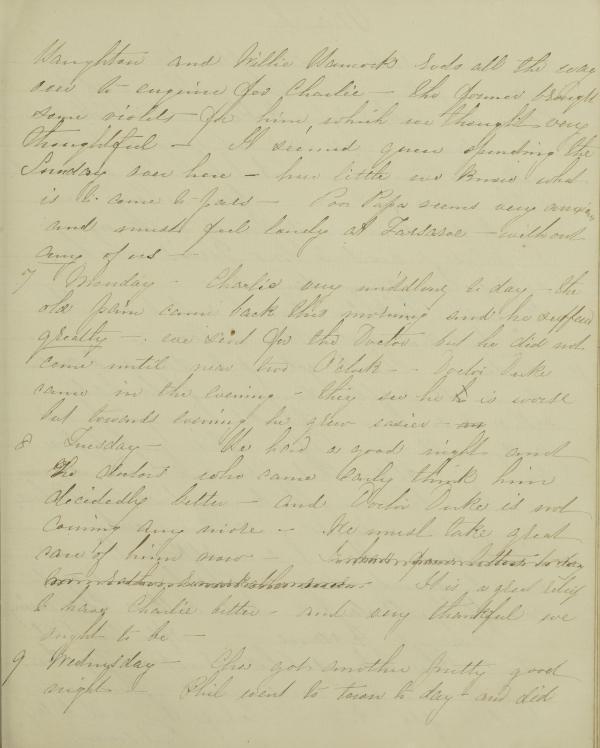 Haughton and Willie Hancock rode all the way
over to enquire for Charlie - the former brought
some violets for him which we thought very
thoughtful - It seemed queer spending the
Sunday over here - how little we know what
is to come to pass - Poor Papa seems very anxious
and must feel lonely at - without
any of us -
7 Monday - Charlie very middling to day - the
old pain came back this morning and he suffered
greatly - we sent for the Doctor but he did not
come until near two O'Clock - Doctor Duke
came in the evening - they see he is worse
but towards evening he grew easier -
8 Tuesday - He had a good night and
the doctors who came early think him
decidedly better - and Doctor Duke is not
coming any more - We must take great
care of him now - It is a great relief
to have Charlie better - and very thankful we
ought to be -
9 Wednesday - Cha got another pretty good
night - Phil went to town to day - and did